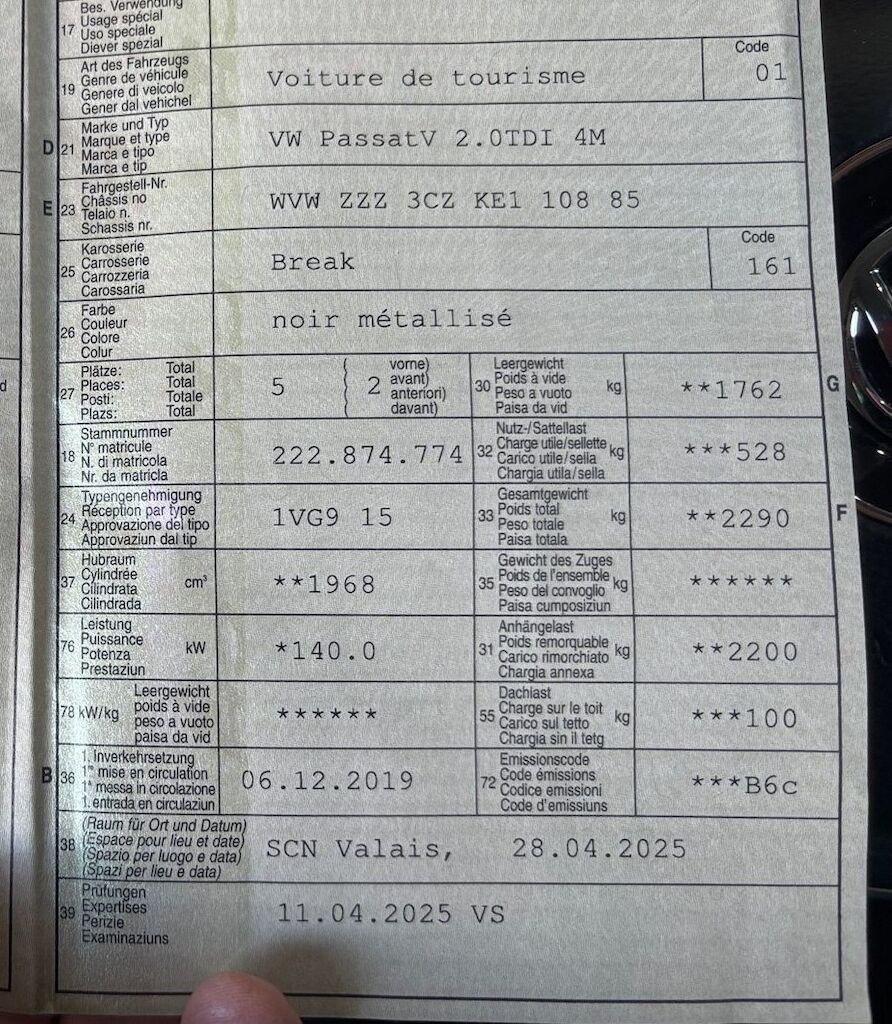 17 Bes. Verwendung
Usage spécial
Uso speciale
Diever spezial
19 Art des Fahrzeugs
Genre de véhicule
Genere di veicolo
Gener dal vehichel
Voiture de tourisme
Code
01
D 21 Marke und Typ
Marque et type
Marca e tipo
Marca e tip
VW PassatV 2.0TDI 4M
E 23 Fahrgestell-Nr.
Châssis no
Telaio n.
Schassis nr.
WVW ZZZ 3CZ KE1 108 85
25 Karosserie
Carrosserie
Carrozzeria
Carossaria
Break
Code
161
26 Farbe
Couleur
Colore
Colur
noir métallisé
27 Plätze: Total
Places: Total
Posti: Totale
Plazs: Total
5 ( 2 vorne)
avant)
anteriori)
davant)
30 Leergewicht
Poids à vide
Peso a vuoto
Paisa da vid
kg
**1762 G
18 Stammnummer
N° matricule
N. di matricola
Nr. da matricla
222.874.774
32 Nutz-/Sattellast
Charge utile/sellette
Carico utile/sella
Chargia utila/sella
kg
***528
24 Typengenehmigung
Réception par type
Approvazione del tipo
Approvaziun dal tip
1VG9 15
33 Gesamtgewicht
Poids total
Peso totale
Paisa totala
kg
**2290 F
37 Hubraum
Cylindrée
Cilindrata
Cilindrada
cm³
**1968
35 Gewicht des Zuges
Poids de l'ensemble
Peso del convoglio
Paisa cumposiziun
kg
******
76 Leistung
Puissance
Potenza
Prestaziun
kW
*140.0
31 Anhängelast
Poids remorquable
Carico rimorchiato
Chargia annexa
kg
**2200
78 kW/kg Leergewicht
poids à vide
peso a vuoto
paisa da vid
******
55 Dachlast
Charge sur le toit
Carico sul tetto
Chargia sin il tetg
kg
***100
B 36 1. Inverkehrsetzung
1re mise en circulation
1a messa in circolazione
1. entrada en circulaziun
06.12.2019
72 Emissionscode
Code émissions
Codice emissioni
Code d'emissiuns
***B6c
38 (Raum für Ort und Datum)
(Espace pour lieu et date)
(Spazio per luogo e data)
(Spazi per lieu e data)
SCN Valais, 28.04.2025
39 Prüfungen
Expertises
Perizie
Examinaziuns
11.04.2025 VS